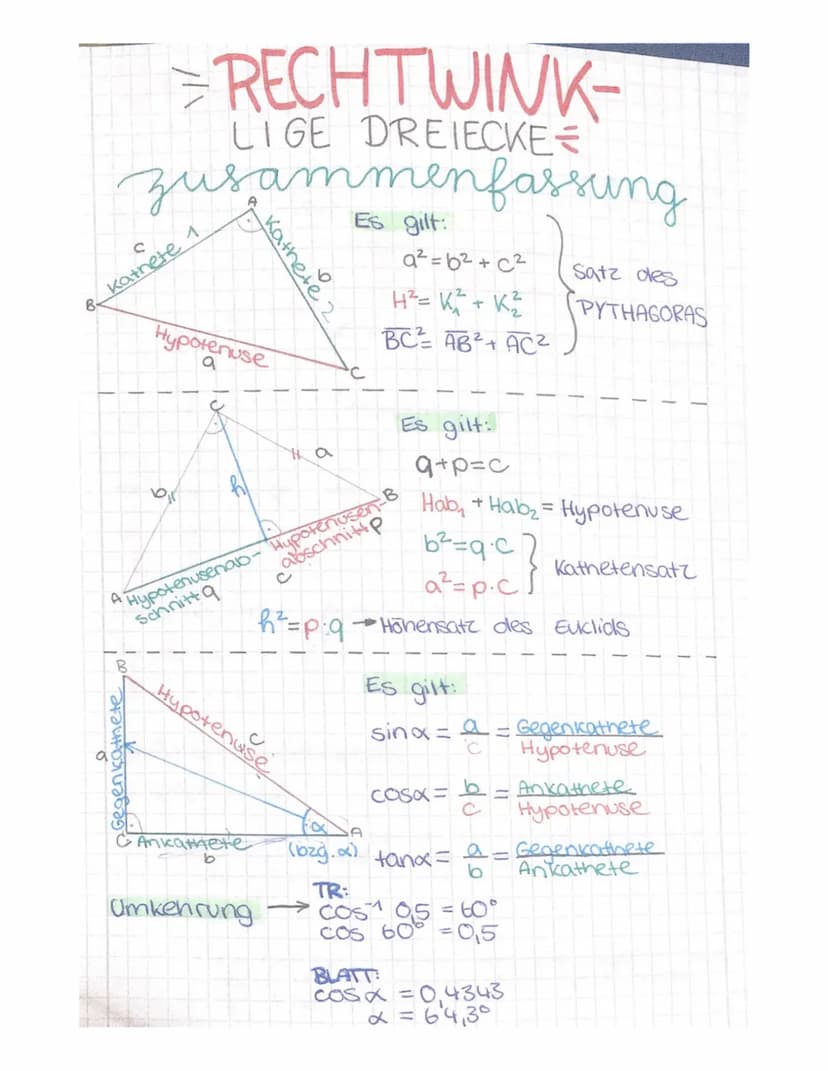 RECHTWINK-
LIGE DREIECKE
zusammenfassung
A
c
Kathete 1
Kathete 2
b
B
Hypotenuse
a
C
Es gilt:
a² = b² + c²
H² = K₁² + K₂²
B̅C̅² = A̅B̅² + A̅C̅²
Satz des
PYTHAGORAS
C
b
h
a
B
Hypotenusen-
abschnitt p
c
A
Hypotenusenab-
schnitt q
Es gilt:
q+p=c
Hab₁ + Hab₂ = Hypotenuse
b²=q·c
a²=p·c
Kathetensatz
h²=p:q → Höhensatz des Euclids
B
Hypotenuse
c
a
Gegenkathete
α
A
C
Ankathete
b
(bzg. α)
Es gilt:
sin α = a/c = Gegenkathete/Hypotenuse
cos α = b/c = Ankathete/Hypotenuse
tan α = a/b = Gegenkathete/Ankathete
Umkehrung →
TR:
cos⁻¹ 0,5 = 60°
cos 60° = 0,5
BLATT:
cos α = 0,4343
α = 64,3°